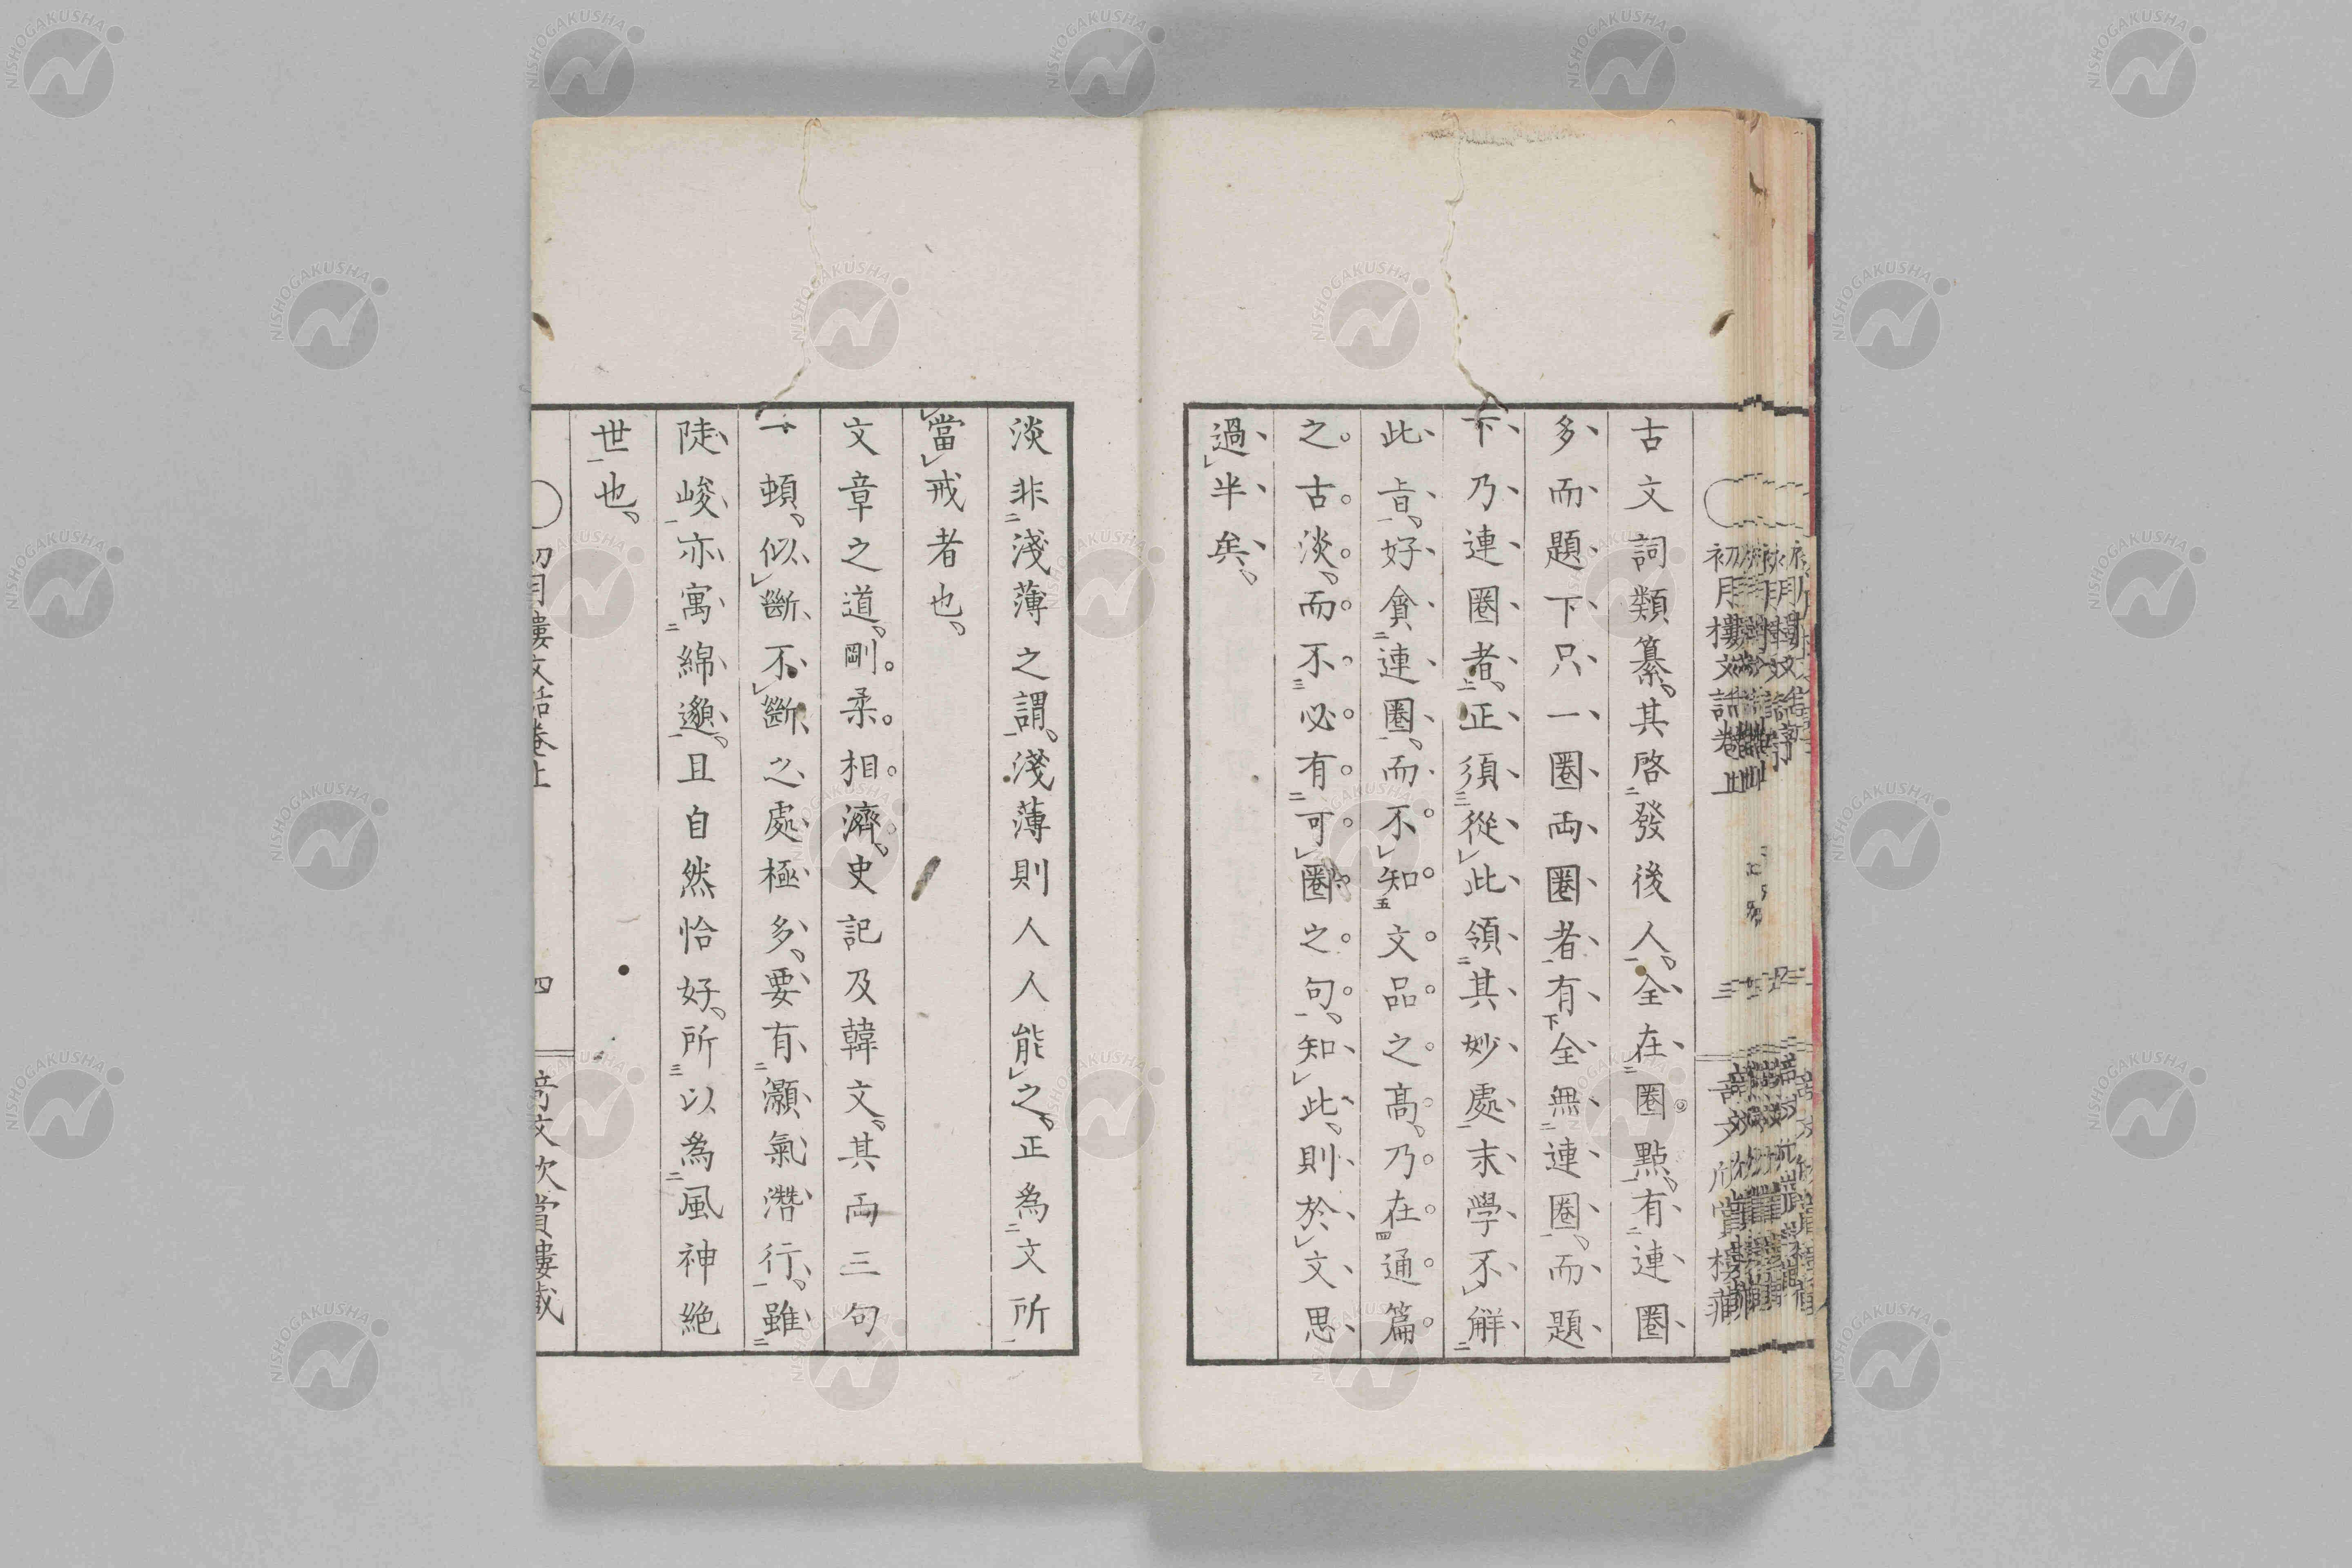 古文詞類纂、其啓發後人、全在圈點、有連圈
多而題下只一圈両圈者有全無連圈、而題
下乃連圈者、正須從此領其妙處末學不觧
此㫖、好貪連圈、而不知文品之高、乃在通篇
之古淡、而不必有可圈之句、知此、則於文思
過半矣、
淡非淺薄之謂、淺薄則人人能之、正為文所
當戒者也、
文章之道、剛柔相濟、史記及韓文、其両三句
一頓、似斷不斷之處極多、要有灝氣濳行、雖
陡峻亦寓綿邈、且自然恰好、所以為風神絶
世也、
初月樓文話卷上
四
文欣賞樓藏
NISHOGAKUSHA